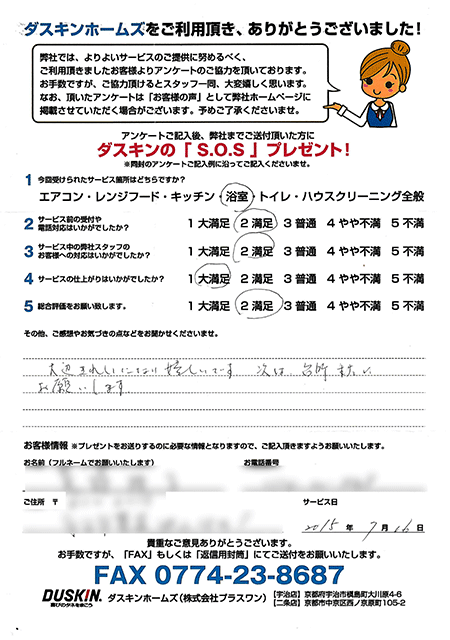 ダスキンホームズをご利用頂き、ありがとうございました！
弊社では、よりよいサービスのご提供に努めるべく、
ご利用頂きましたお客様よりアンケートのご協力を頂いております。
お手数ですが、ご協力頂けるとスタッフ一同、大変嬉しく思います。
なお、頂いたアンケートは「お客様の声」として弊社ホームページに
掲載させていただく場合がございます。予めご了承くださいませ。
アンケートご記入後、弊社までご送付頂いた方に
ダスキンの「 S.O.S 」プレゼント！
※同封のアンケートご記入例に沿ってご記入くださいませ。
1 今回受けられたサービス箇所はどちらですか？
エアコン・レンジフード・キッチン・浴室・トイレ・ハウスクリーニング全般
2 サービス前の受付や
電話対応はいかがでしたか？ 1 大満足 2 満足 3 普通 4 やや不満 5 不満
3 サービス中の弊社スタッフの
お客様への対応はいかがでしたか？ 1 大満足 2 満足 3 普通 4 やや不満 5 不満
4 サービスの仕上がりはいかがでしたか？ 1 大満足 2 満足 3 普通 4 やや不満 5 不満
5 総合評価をお願い致します。 1 大満足 2 満足 3 普通 4 やや不満 5 不満
その他、ご感想やお気づきの点などをお聞かせくださいませ。
大辺きれいになり嬉しいです 次は 台所
お願いします
お客様情報 ※プレゼントをお送りするのに必要な情報となりますので、ご記入頂きますようお願いいたします。
お名前（フルネームでお願いいたします） お電話番号
ご住所 〒 サービス日
2015 年 7 月 16 日
貴重なご意見ありがとうございます。
お手数ですが、「FAX」もしくは「返信用封筒」にてご送付をお願いいたします。
FAX 0774-23-8687
DUSKIN. ダスキンホームズ（株式会社プラスワン） 【宇治店】京都府宇治市槇島町大川原4-6
喜びのタネをまこう 【二条店】京都市中京区西ノ京原町105-2